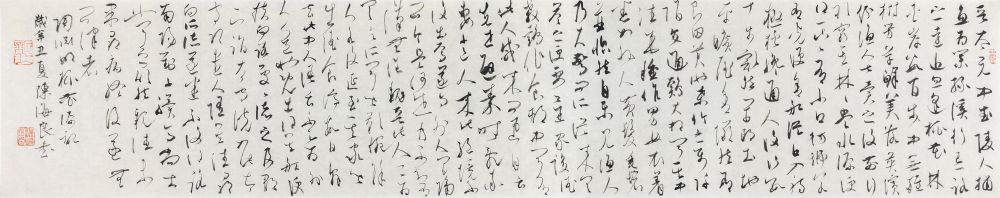 晉太元中武陵人捕
魚為業緣溪行忘路
之遠近忽逢桃花林
夾岸數百步中無雜
樹芳草鮮美落英繽
紛漁人甚異之復前行
欲窮其林林盡水源便
得一山山有小口彷彿若
有光便舍船從口入初
極狹才通人復行數
十步豁然開朗土地
平曠屋舍儼然有
良田美池桑竹之屬阡
陌交通雞犬相聞其中
往來種作男女衣著
悉如外人黃髮垂髫
並怡然自樂見漁人
乃大驚問所從來具
答之便要還家設酒
殺雞作食村中聞有
此人咸來問訊自云
先世避秦時亂率
妻子邑人來此絕境不
復出焉遂與外人間隔
問今是何世乃不知有
漢無論魏晉此人一一為
具言所聞皆歎惋餘
人各復延至其家皆
出酒食停數日辭
去此中人語云不足為外
人道也既出得其船便
扶向路處處誌之及郡
下詣太守說如此太
守即遣人隨其往尋
向所誌遂迷不復得路
南陽劉子驥高尚士
也聞之欣然規往未
果尋病終後遂無
問津者
陶淵明桃花源記
歲辛丑夏陳海良書